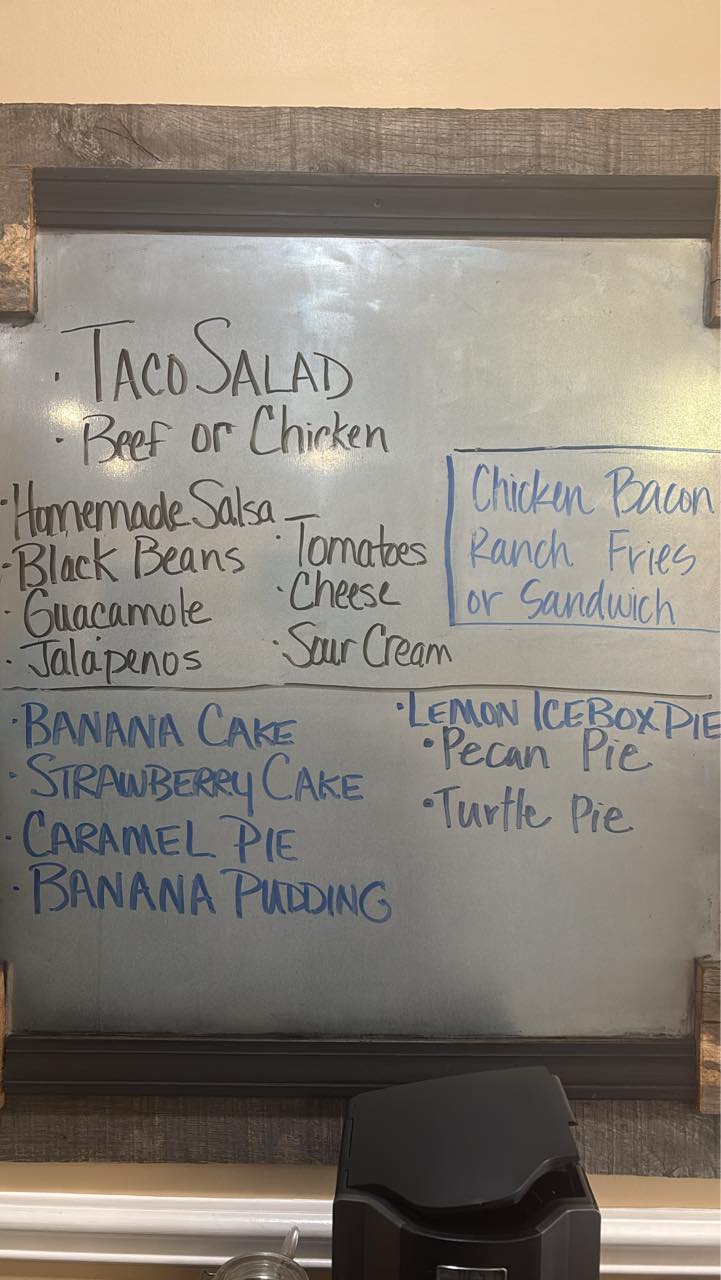 · TACO SALAD
· Beef or Chicken
· Homemade Salsa
· Black Beans
· Guacamole
· Jalapenos
· Tomatoes
· Cheese
· Sour Cream
Chicken Bacon
Ranch Fries
or Sandwich
· BANANA CAKE
· STRAWBERRY CAKE
· CARAMEL PIE
· BANANA PUDDING
· LEMON ICEBOX PIE
· Pecan Pie
· Turtle Pie